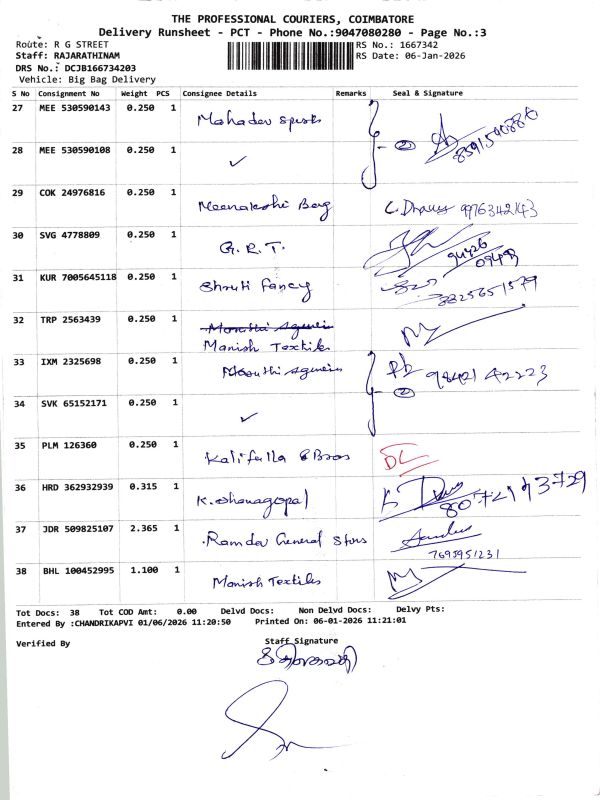 THE PROFESSIONAL COURIERS, COIMBATORE
Delivery Runsheet - PCT - Phone No.:9047080280 - Page No.:3
Route: R G STREET
RS No.: 1667342
Staff: RAJARATHINAM
RS Date: 06-Jan-2026
DRS No.: DCJB166734203
Vehicle: Big Bag Delivery
S No Consignment No Weight PCS Consignee Details Remarks Seal & Signature
27 MEE 530590143 0.250 1 Mahadev
28 MEE 530590108 0.250 1 ✓
29 COK 24976816 0.250 1 Meenakshi Bag 9976342143
30 SVG 4778809 0.250 1 G.R.T.
31 KUR 7005645118 0.250 1 Shruti Fancy 8825651579
32 TRP 2563439 0.250 1
Manish Textiles
33 IXM 2325698 0.250 1 98421 42223
34 SVK 65152171 0.250 1 ✓
35 PLM 126360 0.250 1 & Bros
36 HRD 362932939 0.315 1 K.
37 JDR 509825107 2.365 1 Ramdev General Stors
7695951231
38 BHL 100452995 1.100 1 Manish Textiles
Tot Docs: 38 Tot COD Amt: 0.00 Delvd Docs: Non Delvd Docs: Delvy Pts:
Entered By :CHANDRIKAPVI 01/06/2026 11:20:50 Printed On: 06-01-2026 11:21:01
Verified By
Staff Signature